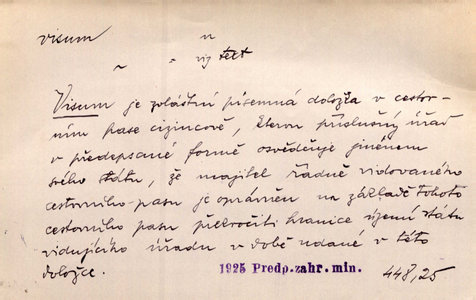 visum
" viz text
Visum je zvláštní písemná doložka v cestov-
ním pase cizincově, kterou příslušný úřad
v předepsané formě osvědčuje jménem
svého státu, že majitel řádně vidovaného
cestovního pasu je oprávněn na základě tohoto
cestovního pasu překročiti hranice území státu
vidujícího úřadu v době udané v této
doložce.
1925 Predp.zahr.min. 448,25